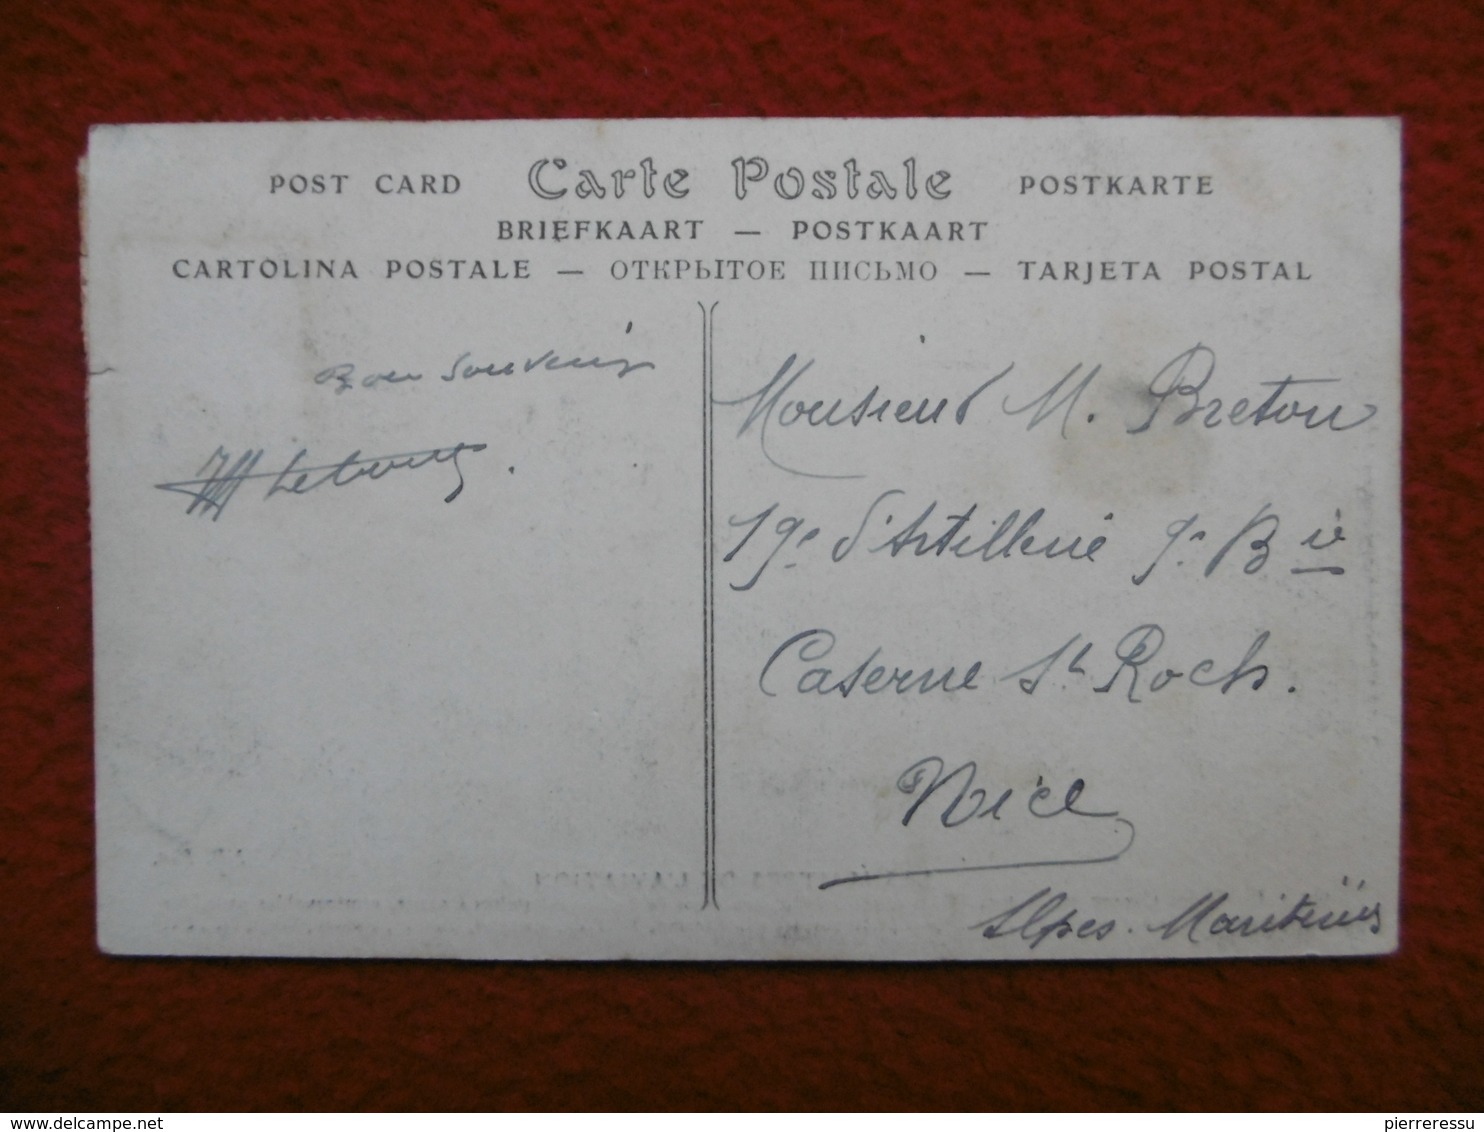 POST CARD Carte Postale POSTKARTE
BRIEFKAART — POSTKAART
CARTOLINA POSTALE — ОТКРЫТОЕ ПИСЬМО — TARJETA POSTAL
Bon Souvenir
Monsieur M. Breton
19e d'Artillerie 9e Bie
Caserne St Roch.
Nice
Alpes-Maritimes
delcampe.net
pierreressu